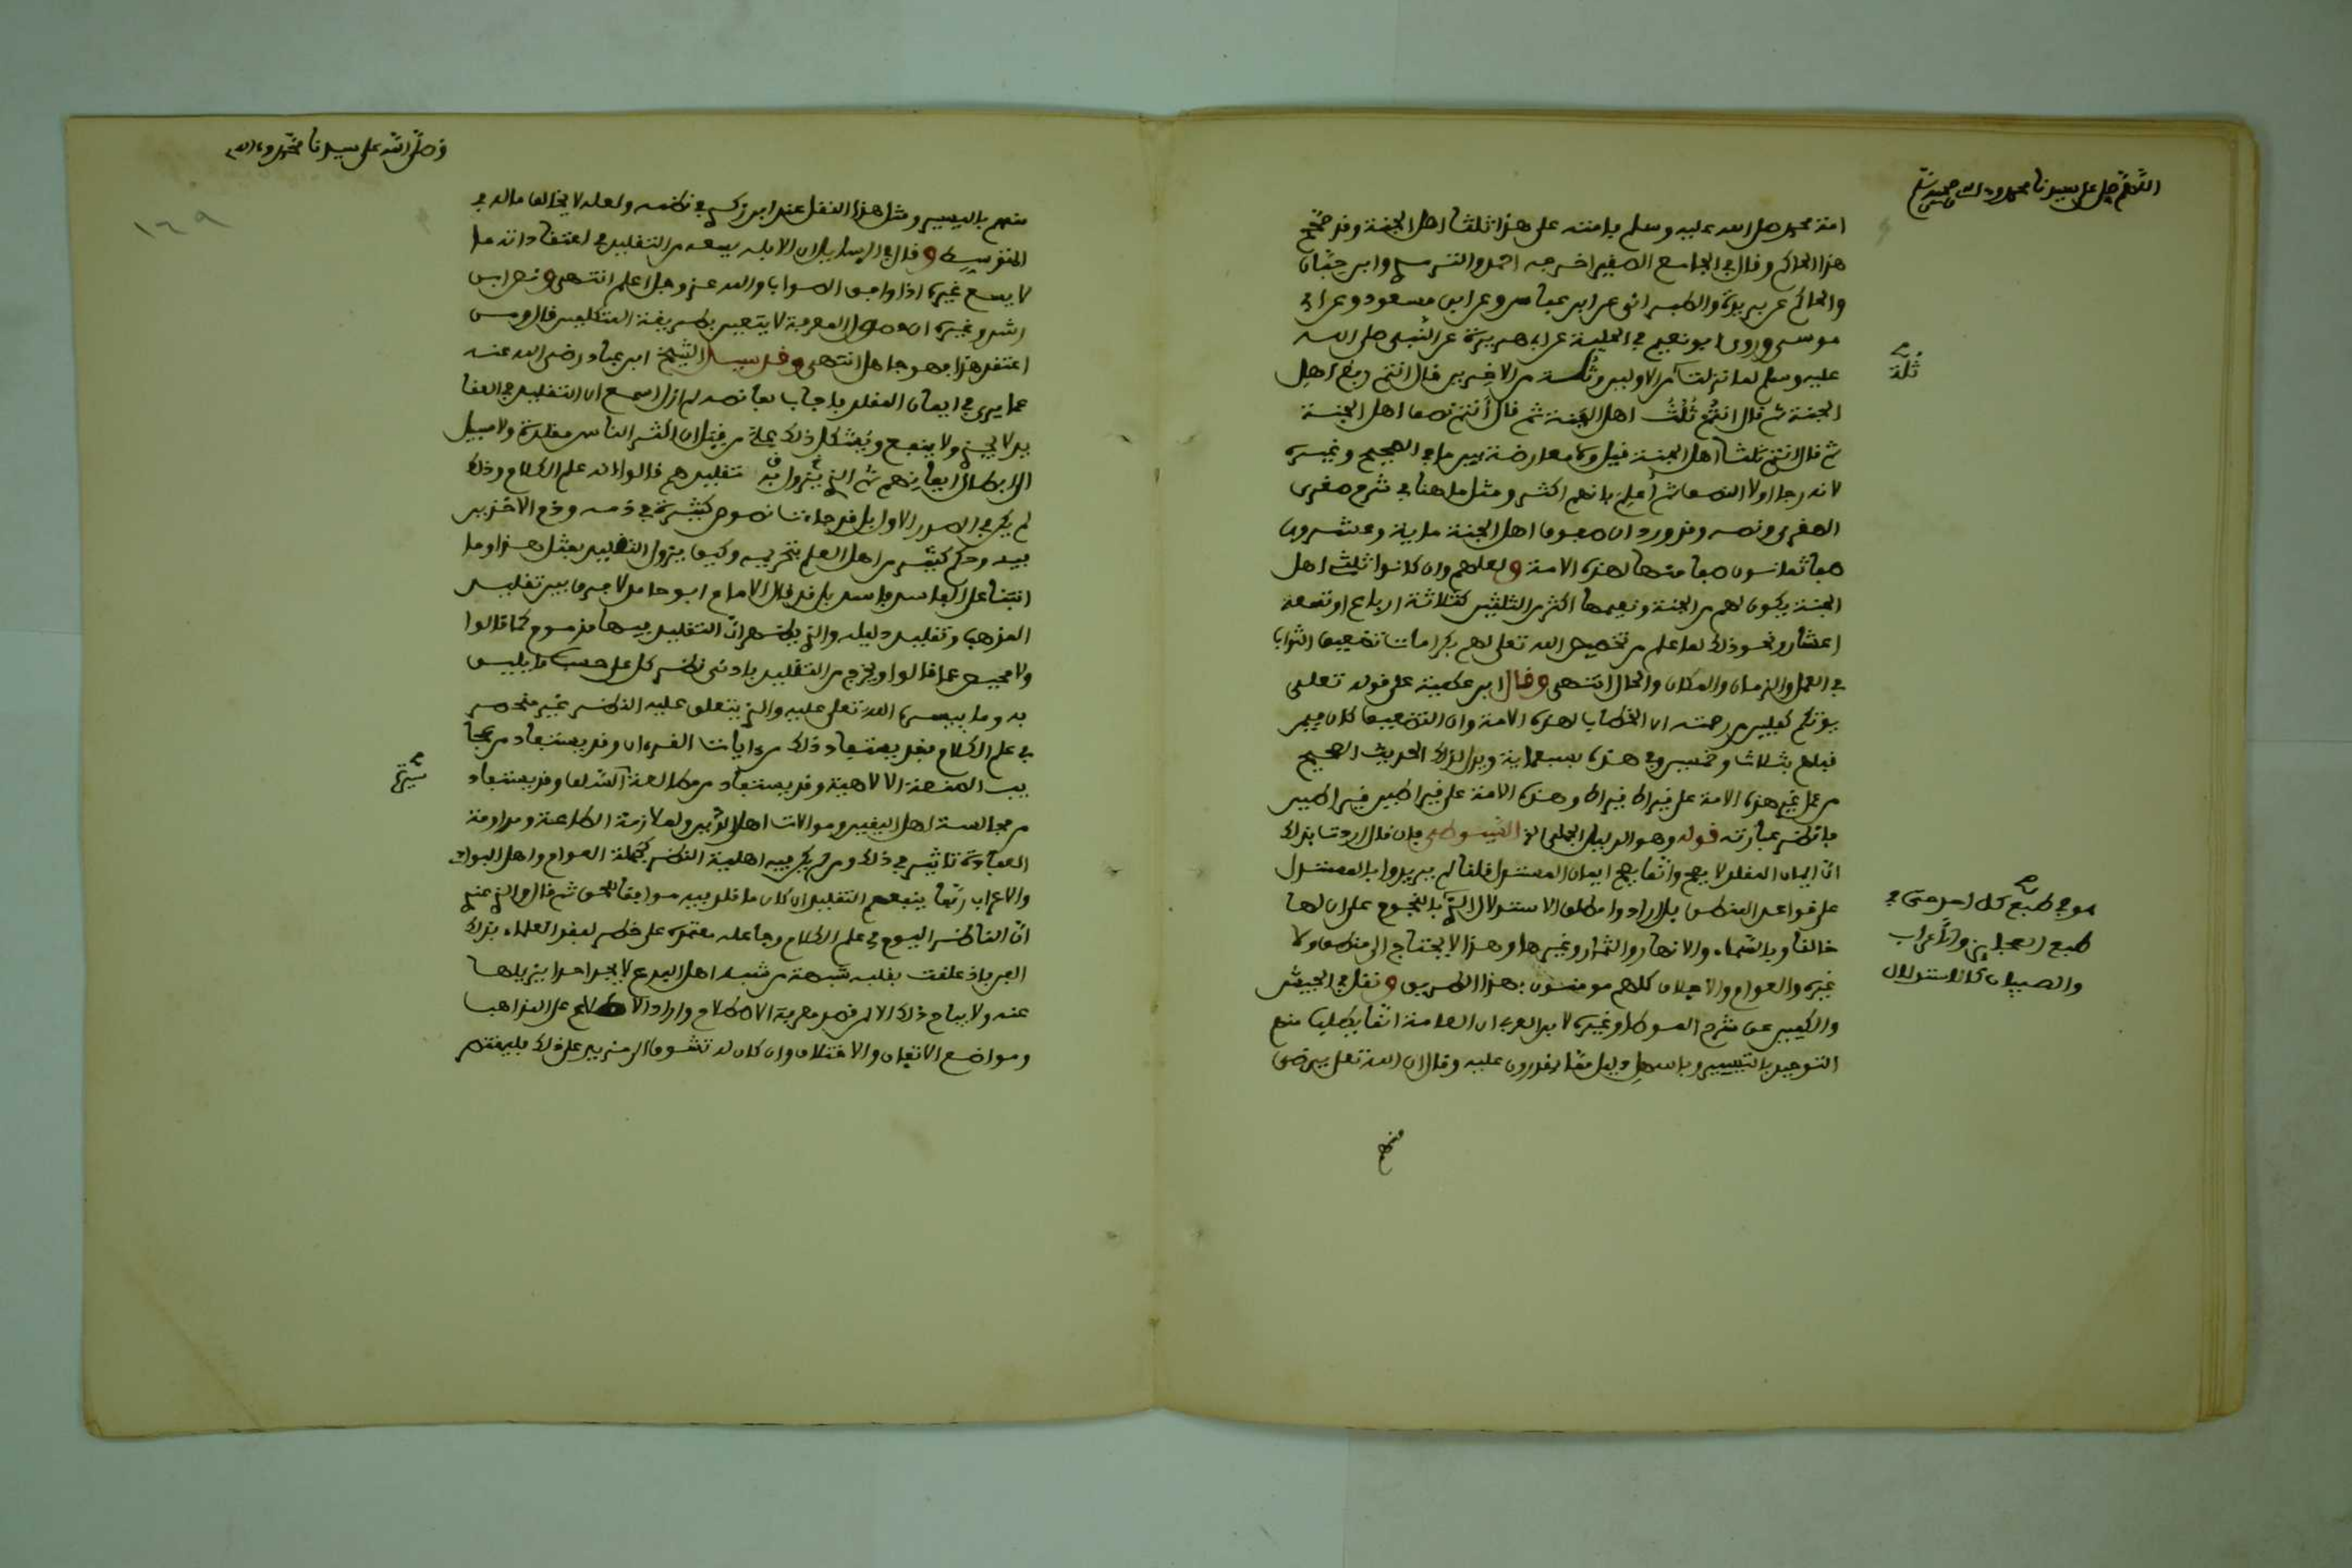 اللهم صل على سيدنا محمد وءاله وصحبه وسلم
امة محمد صلى الله عليه وسلم بامته على هذا ثلثا اهل الجنة وقد صحح
هذا الحاكم وقال في الجامع الصغير اخرجه احمد والترمذي وابن حبان
والحاكم عن بريدة والطبراني عن ابن عباس وعن ابن مسعود وعن ابي
موسى وروى ابو نعيم في الحلية عن ابي هريرة عن النبي صلى الله
عليه وسلم لما نزلت من الاولين وثلة من الاخرين قال انتم ربع اهل
ثلة
الجنة ثم قال انتم ثلث اهل الجنة ثم قال انتم نصف اهل الجنة
ثم قال انتم ثلثا اهل الجنة قيل ولا معارضة بين ما في الصحيح وغيره
لانه رجا اولا النصف ثم أعلم بانهم اكثر ومثل ما هنا في شرح صغرى
الصغرى ونصه وقد ورد ان صفوف اهل الجنة ماية وعشرون
صفا ثمانون صفا منها لهذه الامة ولعلهم وان كانوا ثلثي اهل
الجنة يكون لهم من الجنة ونعيمها اكثر من الثلثين كثلاثة ارباع او تسعة
اعشار ونحو ذلك لما علم من تخصيص الله تعلى لهم بكرامات تضعيف الثواب
في العمل والزمان والمكان والحال انتهى وقال ابن عطية على قوله تعلى
يوتكم كفلين من رحمته ان الخطاب لهذه الامة وان التضعيف كان فيمن
قبلهم بثلاث وخمسين وفي هذه بسبعماية ويدل لذلك الحديث الصحيح
من عمل غير هذه الامة على قيراط قيراط وهذه الامة على قيراطين قيراطين
فانظر عبارته قوله وهو الدليل الجملي الخ السيوطي فان قال اردنا بذلك
ان ايمان المقلد لا يصح وانما يصح ايمان المستدل قلنا لم يريدوا بالمستدل
على قواعد المنطق بل ارادوا مطلق الاستدلال الذي بالنجوم على ان لها
هو في طبع كل احد حتى في
طبع العجايز والأعراب
والصبيان كالاستدلال
خالقا وبالسماء والانهار والثمار وغيرها وهذا لا يحتاج الى منطق ولا
غيره والعوام والاجلاف كلهم مومنون بهذا الطريق ونقل في الجيش
والكبير عن شرح الموطا وغيره لابن العربي ان العامة انما يطلب منهم
التوحيد بالتيسير وباسهل دليل مما يقدرون عليه وقال ان الله تعلى يرضى
منهم
وصلى الله على سيدنا محمد وءاله
١٦٩
منهم باليسير ومثل هذا النقل عند ابن زكري في نظمه ولعله لا يخالف ما له في
المتوسط وقال في الرسايل ان الابله يسعه من التقليد في اعتقاداته ما
لا يسع غيره اذا وافق الصواب والله عز وجل اعلم انتهى ونص ابن
رشد وغيره ان حصول المعرفة لا يتعين بطريقة المتكلمين قال ومن
اعتقد هذا فهو جاهل انتهى وقد سيل الشيخ ابن عباد رضي الله عنه
عما يرى في ايمان المقلد فاجاب بما نصه لم ازل اسمع ان التقليد في العقا
يد لا يجزي ولا ينفع ويشكل ذلك علي من قبل ان اكثر الناس مقلدة ولا سبيل
الى ابطال ايمانهم ثم الذي يزول به تقليدهم قالوا انه علم الكلام وذلك
لم يكن في الصدر الاول بل قد جاءتنا نصوص كثيرة في ذمه وذم الاخذين
فيه وحكم كثير من اهل العلم بتحريمه وكيف يزول التقليد بمثل هذا وما
انبنى على الفاسد فاسد بل قد قال الامام ابو حامد لا فرق بين تقليد
المذهب وتقليد دليله والذي يظهر ان التقليد فيها مذموم كما قالوا
ولا محيص عما قالوا ويخرج من التقليد بادنى نظر كل على حسب ما يليق
به وما ييسره الله تعلى عليه والذي يتعلق عليه النظر غير منحصر
في علم الكلام فقد يستفاد ذلك من ءايات القرءان وقد يستفاد من عجا
يب الصنعة الالاهية وقد يستفاد من مطالعة السلف وقد يستفاد
سيرة
من مجالسة اهل اليقين وموالات اهل الدين ولملازمة الطاعة ومداومة
العبادة تاثير في ذلك ومن لم يكن فيه اهلية النظر كجملة العوام واهل البوادي
والاعراب ربما ينفعهم التقليد ان كان ما قلد فيه موافقا للحق ثم قال والذي عندي
ان الناظر اليوم في علم الكلام وجاعله معتمده على خطر لفقد العلماء بذلك
الفن فاذ علقت بقلبه شبهة من شبه اهل البدع لا يجد احدا يزيلها
عنه ولا يباح ذلك الا لمن قصد معرفة الاصطلاح واراد الاطلاع على المذاهب
ومواضع الاتفاق والاختلاف وان كان له تشوف الى مزيد على ذلك فليقتصر